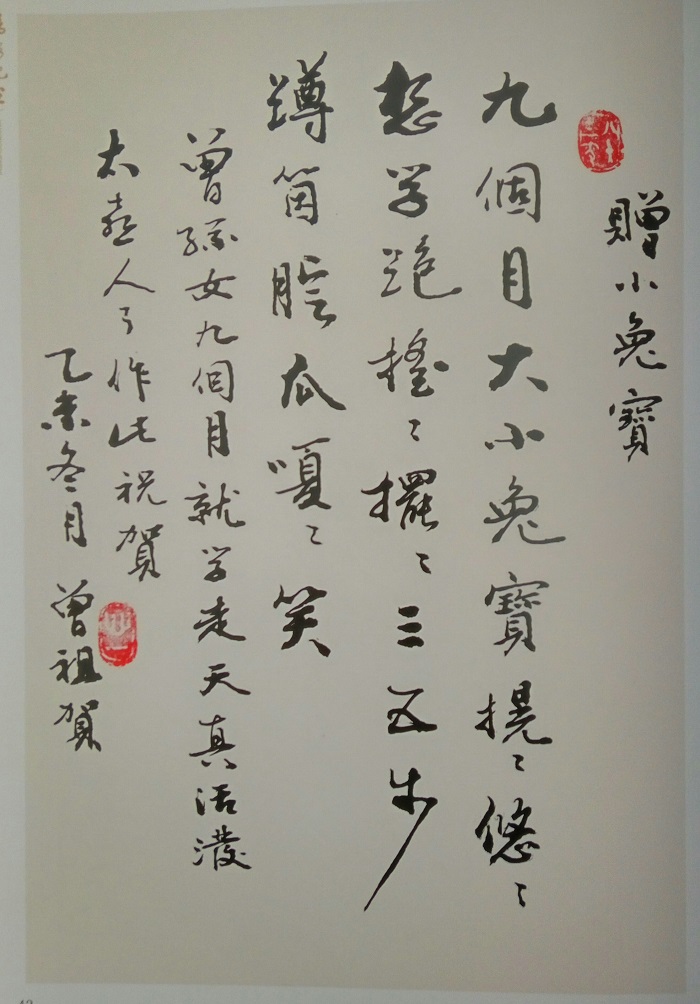 贈小兔寶
九個月大小兔寶摇〻悠〻
想学跑摇〻擺〻三五步
蹲箇腚瓜嘎〻笑
曾孫女九個月就学走天真活潑
太喜人了作此祝賀
乙未冬月 曾祖賀